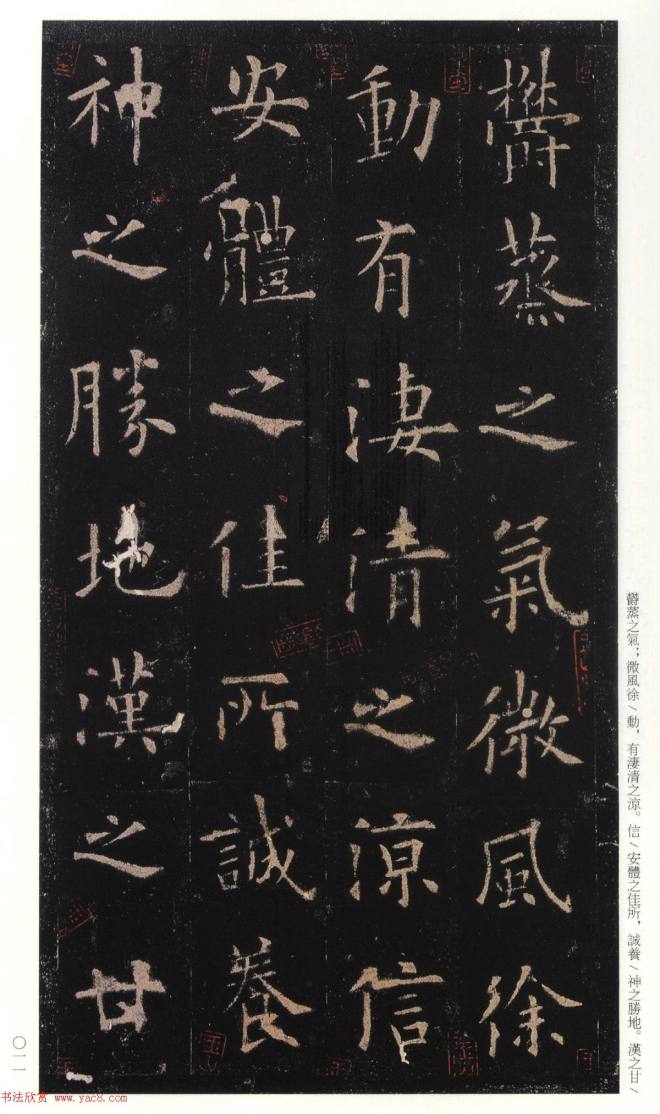 欝蒸之氣微風徐
動有淒清之涼信
安體之佳所誠養
神之勝地漢之甘
欝蒸之氣；微風徐\動，有淒清之涼。信\安體之佳所，誠養\神之勝地。漢之甘\
〇一一
书法欣赏 www.yac8.com